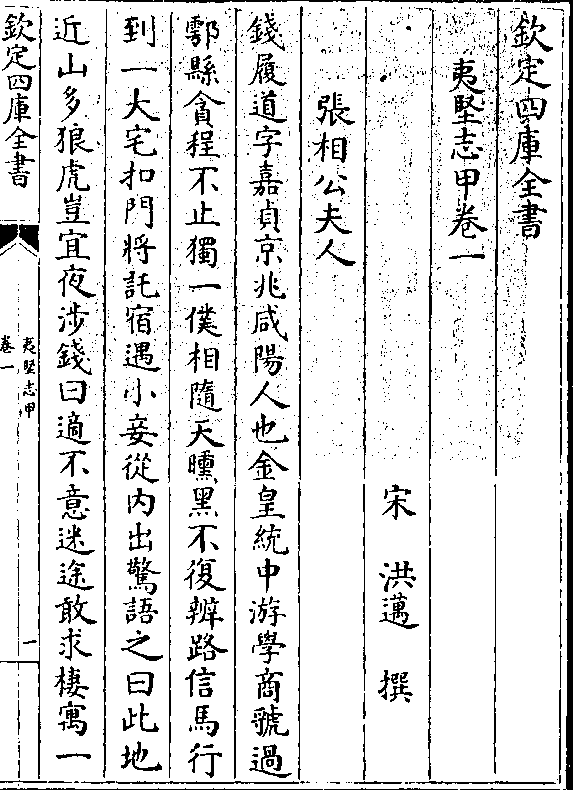 欽定四庫全書
夷堅志甲卷一
宋 洪邁 撰
張相公夫人
錢履道字嘉貞京兆咸陽人也金皇統中游學商虢過
鄠縣貪程不止獨一僕相隨天曛黑不復辨路信馬行
到一大宅扣門將託宿遇小妾從内出驚語之曰此地
近山多狼虎豈宜夜渉錢曰適不意迷途敢求棲寓一
欽定四庫全書
夷堅志甲
卷一
一